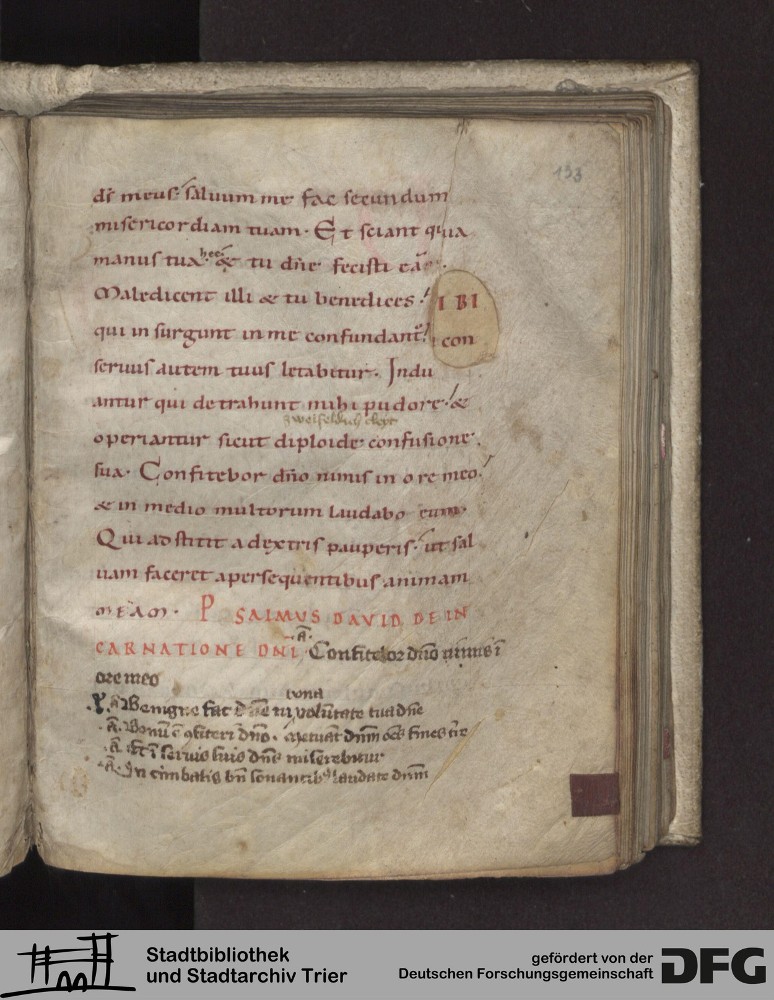 193
ds̄ meus. saluum me fac secundum
misericordiam tuam. Et sciant quia
manus tua hec. & tu dn̄e fecisti eā.
Maledicent illi & tu benedices. IBI
qui in surgunt in me confundant. con
seruus autem tuus letabitur. Indu
antur qui detrahunt mihi pudore. &
operiantur sicut diploide confusione.
sua. Confitebor dn̄o nimis in ore meo.
& in medio multorum laudabo eum.
Qui adstitit adextris pauperis. ut sal
uam faceret apersequentibus animam
MEAM. PSALMUS DAVID DE IN
CARNATIONE DNI. ā. Confitebor dn̄o nimis ī
ore meo
bona
ā. Benigne fac dn̄e in uoluntate tua dn̄e
ā. Bonū ē ꝯfiteri dn̄o.
ā. seruis suis dn̄s miserebitur
ā. In cimbalis bn̄ sonantibꝰ laudate dnm̄
Stadtbibliothek
und Stadtarchiv Trier
gefördert von der
Deutschen Forschungsgemeinschaft
DFG